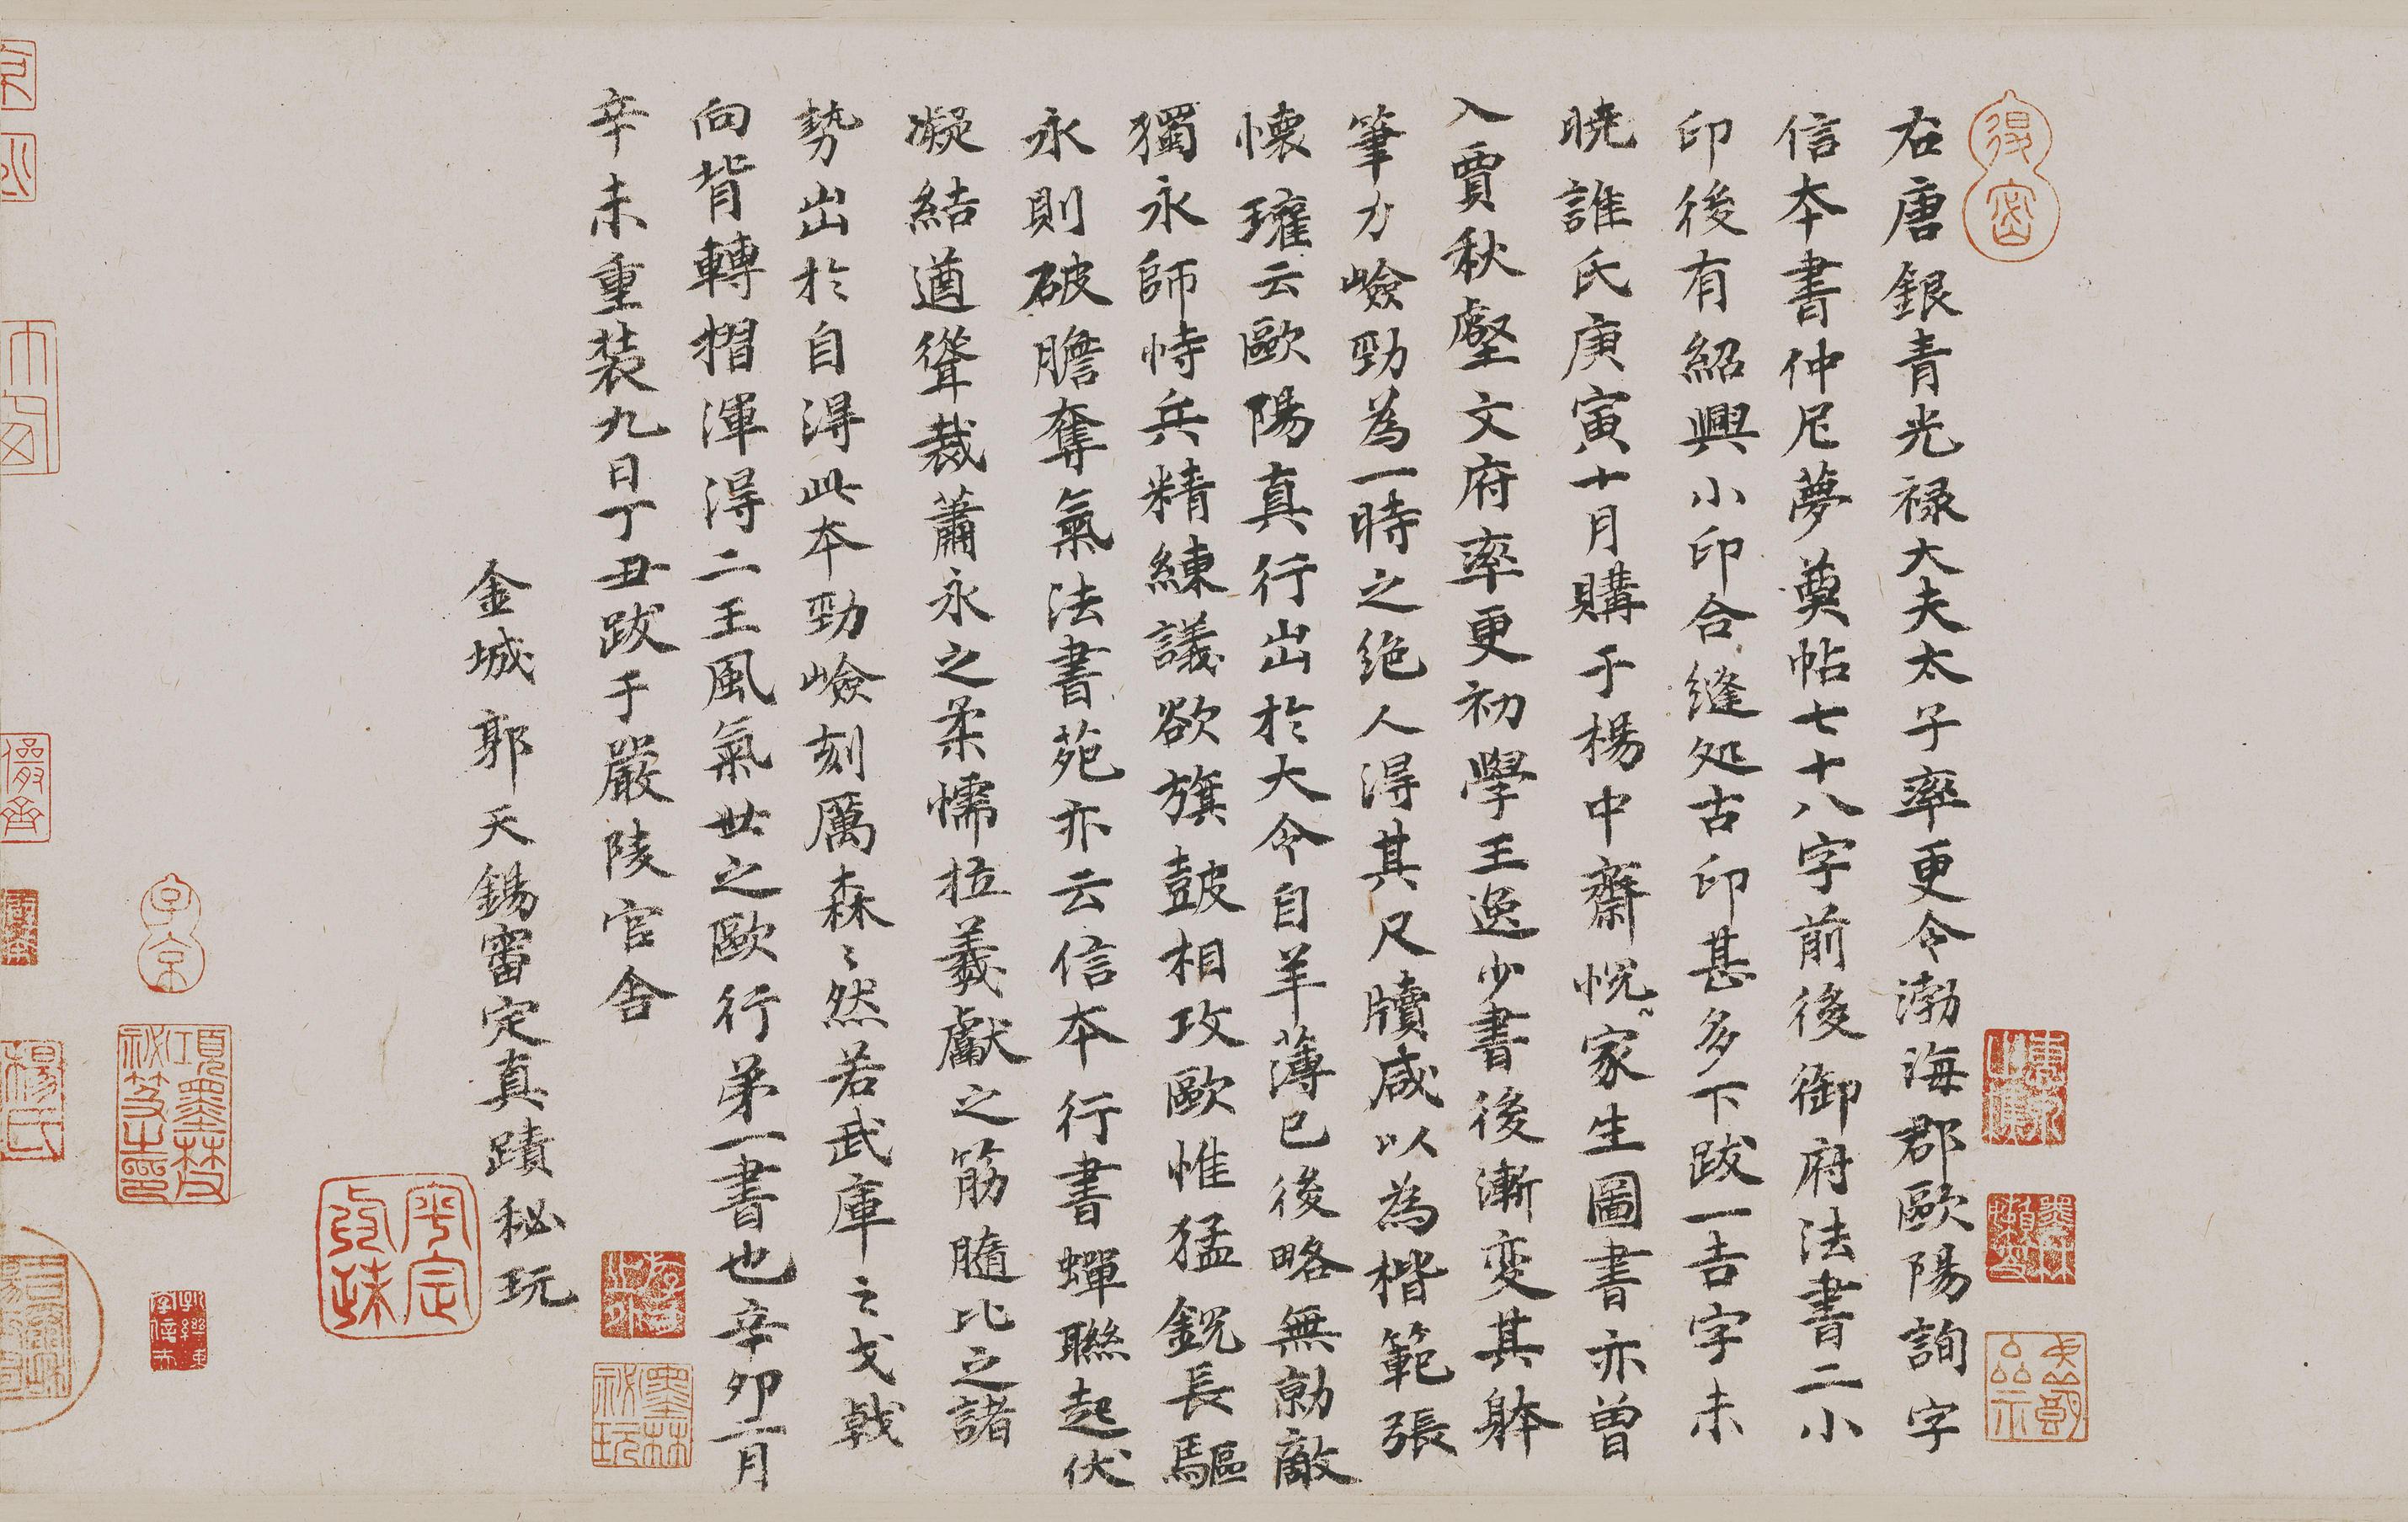 右唐銀青光禄大夫太子率更令渤海郡歐陽詢字
信本書仲尼夢奠帖七十八字前後御府法書二小
印後有紹興小印合縫处古印甚多下跋一吉字未
曉誰氏庚寅十月購于楊中齋怳家生圖書亦曾
入賈秋壑文府率更初學王逸少書後漸変其躰
筆力嶮勁為一時之絶人得其尺牘咸以為楷範張
懐瓘云歐陽真行出於大令自羊薄已後略無勍敵
獨永師恃兵精練議欲旗鼓相攻歐惟猛鋭長驅
永則破膽奪氣法書苑亦云信本行書蟬聯起伏
凝結遒聳裁蕭永之柔懦拉羲獻之筋髓比之諸
勢出於自得此本勁嶮刻厲森〻然若武庫之戈戟
向背轉摺渾得二王風氣世之歐行第一書也辛卯二月
辛未重装九日丁丑跋于嚴陵官舍
金城郭天錫審定真蹟秘玩
得密
子京
項墨林父秘笈之印
墨林秘玩
平定
楊氏